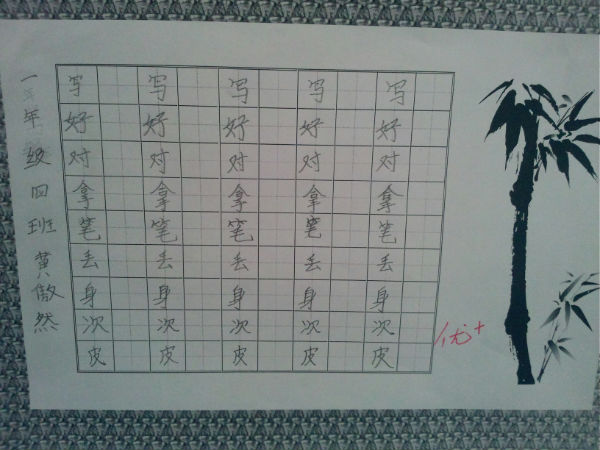 一年级四班黄傲然
写 写 写 写 写
好 好 好 好 好
对 对 对 对 对
拿 拿 拿 拿 拿
笔 笔 笔 笔 笔
丢 丢 丢 丢 丢
身 身 身 身 身
次 次 次 次 次
皮 皮 皮 皮 皮
优+